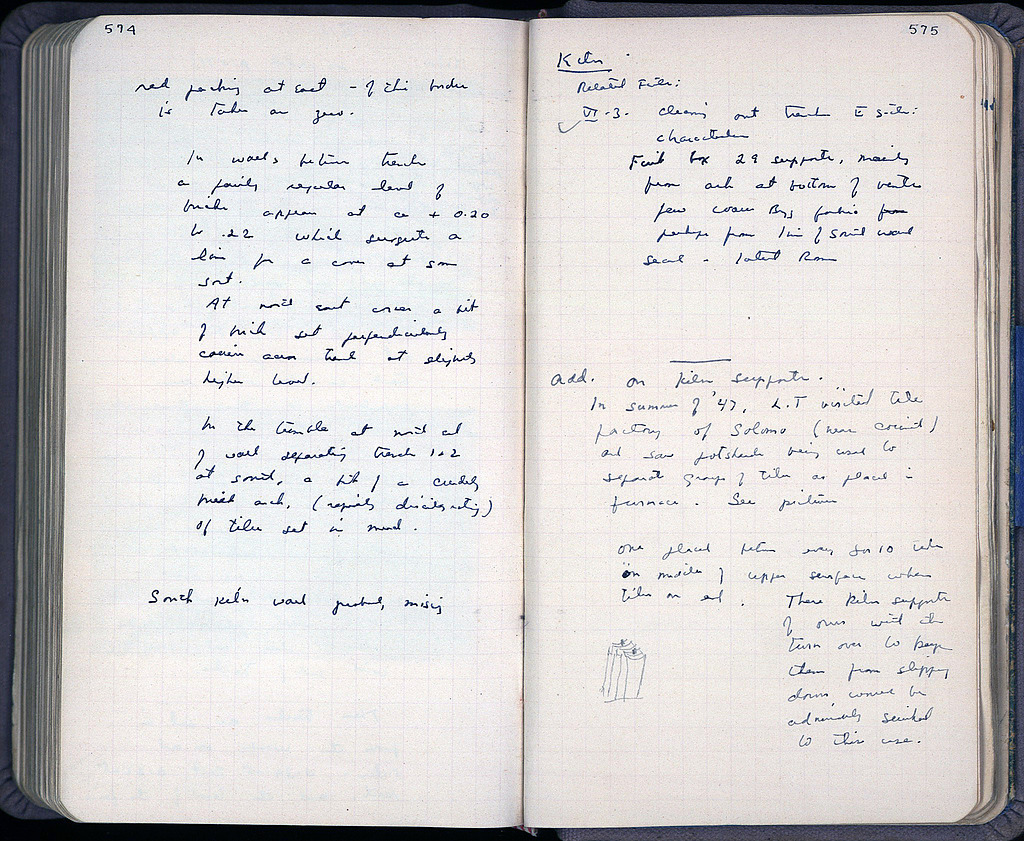 574
red packing at east - of this border
is taken as zero.
In walls between trenches
a fairly regular level of
bricks appears at ca + 0.20
to .22 which suggests a
line for a cover at some
sort.
At north east corner a bit
of brick set perpendicularly
across trench at slightly
higher level.
In the tumble at north end
of wall separating trench 1+2
at south, a bit of a crudely
brick arch, (rapidly disintegrating)
of tiles set in mud.
South kiln wall probably missing
575
Kiln
Related Finds:
VI-3. cleaning out trench E side:
characteristic
Find box 29 supports, mainly
from ash at bottom of
few coarse Byz from
perhaps from line of south wall
- latest Roman
add. on kiln supports.
In summer of '47, L.T visited tile
factory of Solomo (near Corinth)
and saw potsherds being used to
separate groups of tiles as placed in
furnace. See pictures
one placed between every 5 or 10 tiles
on middle of upper surface when
tiles on end. These kiln supports
of ours with the
turn over to keep
them from slipping
down would be
admirably suited
to this use.